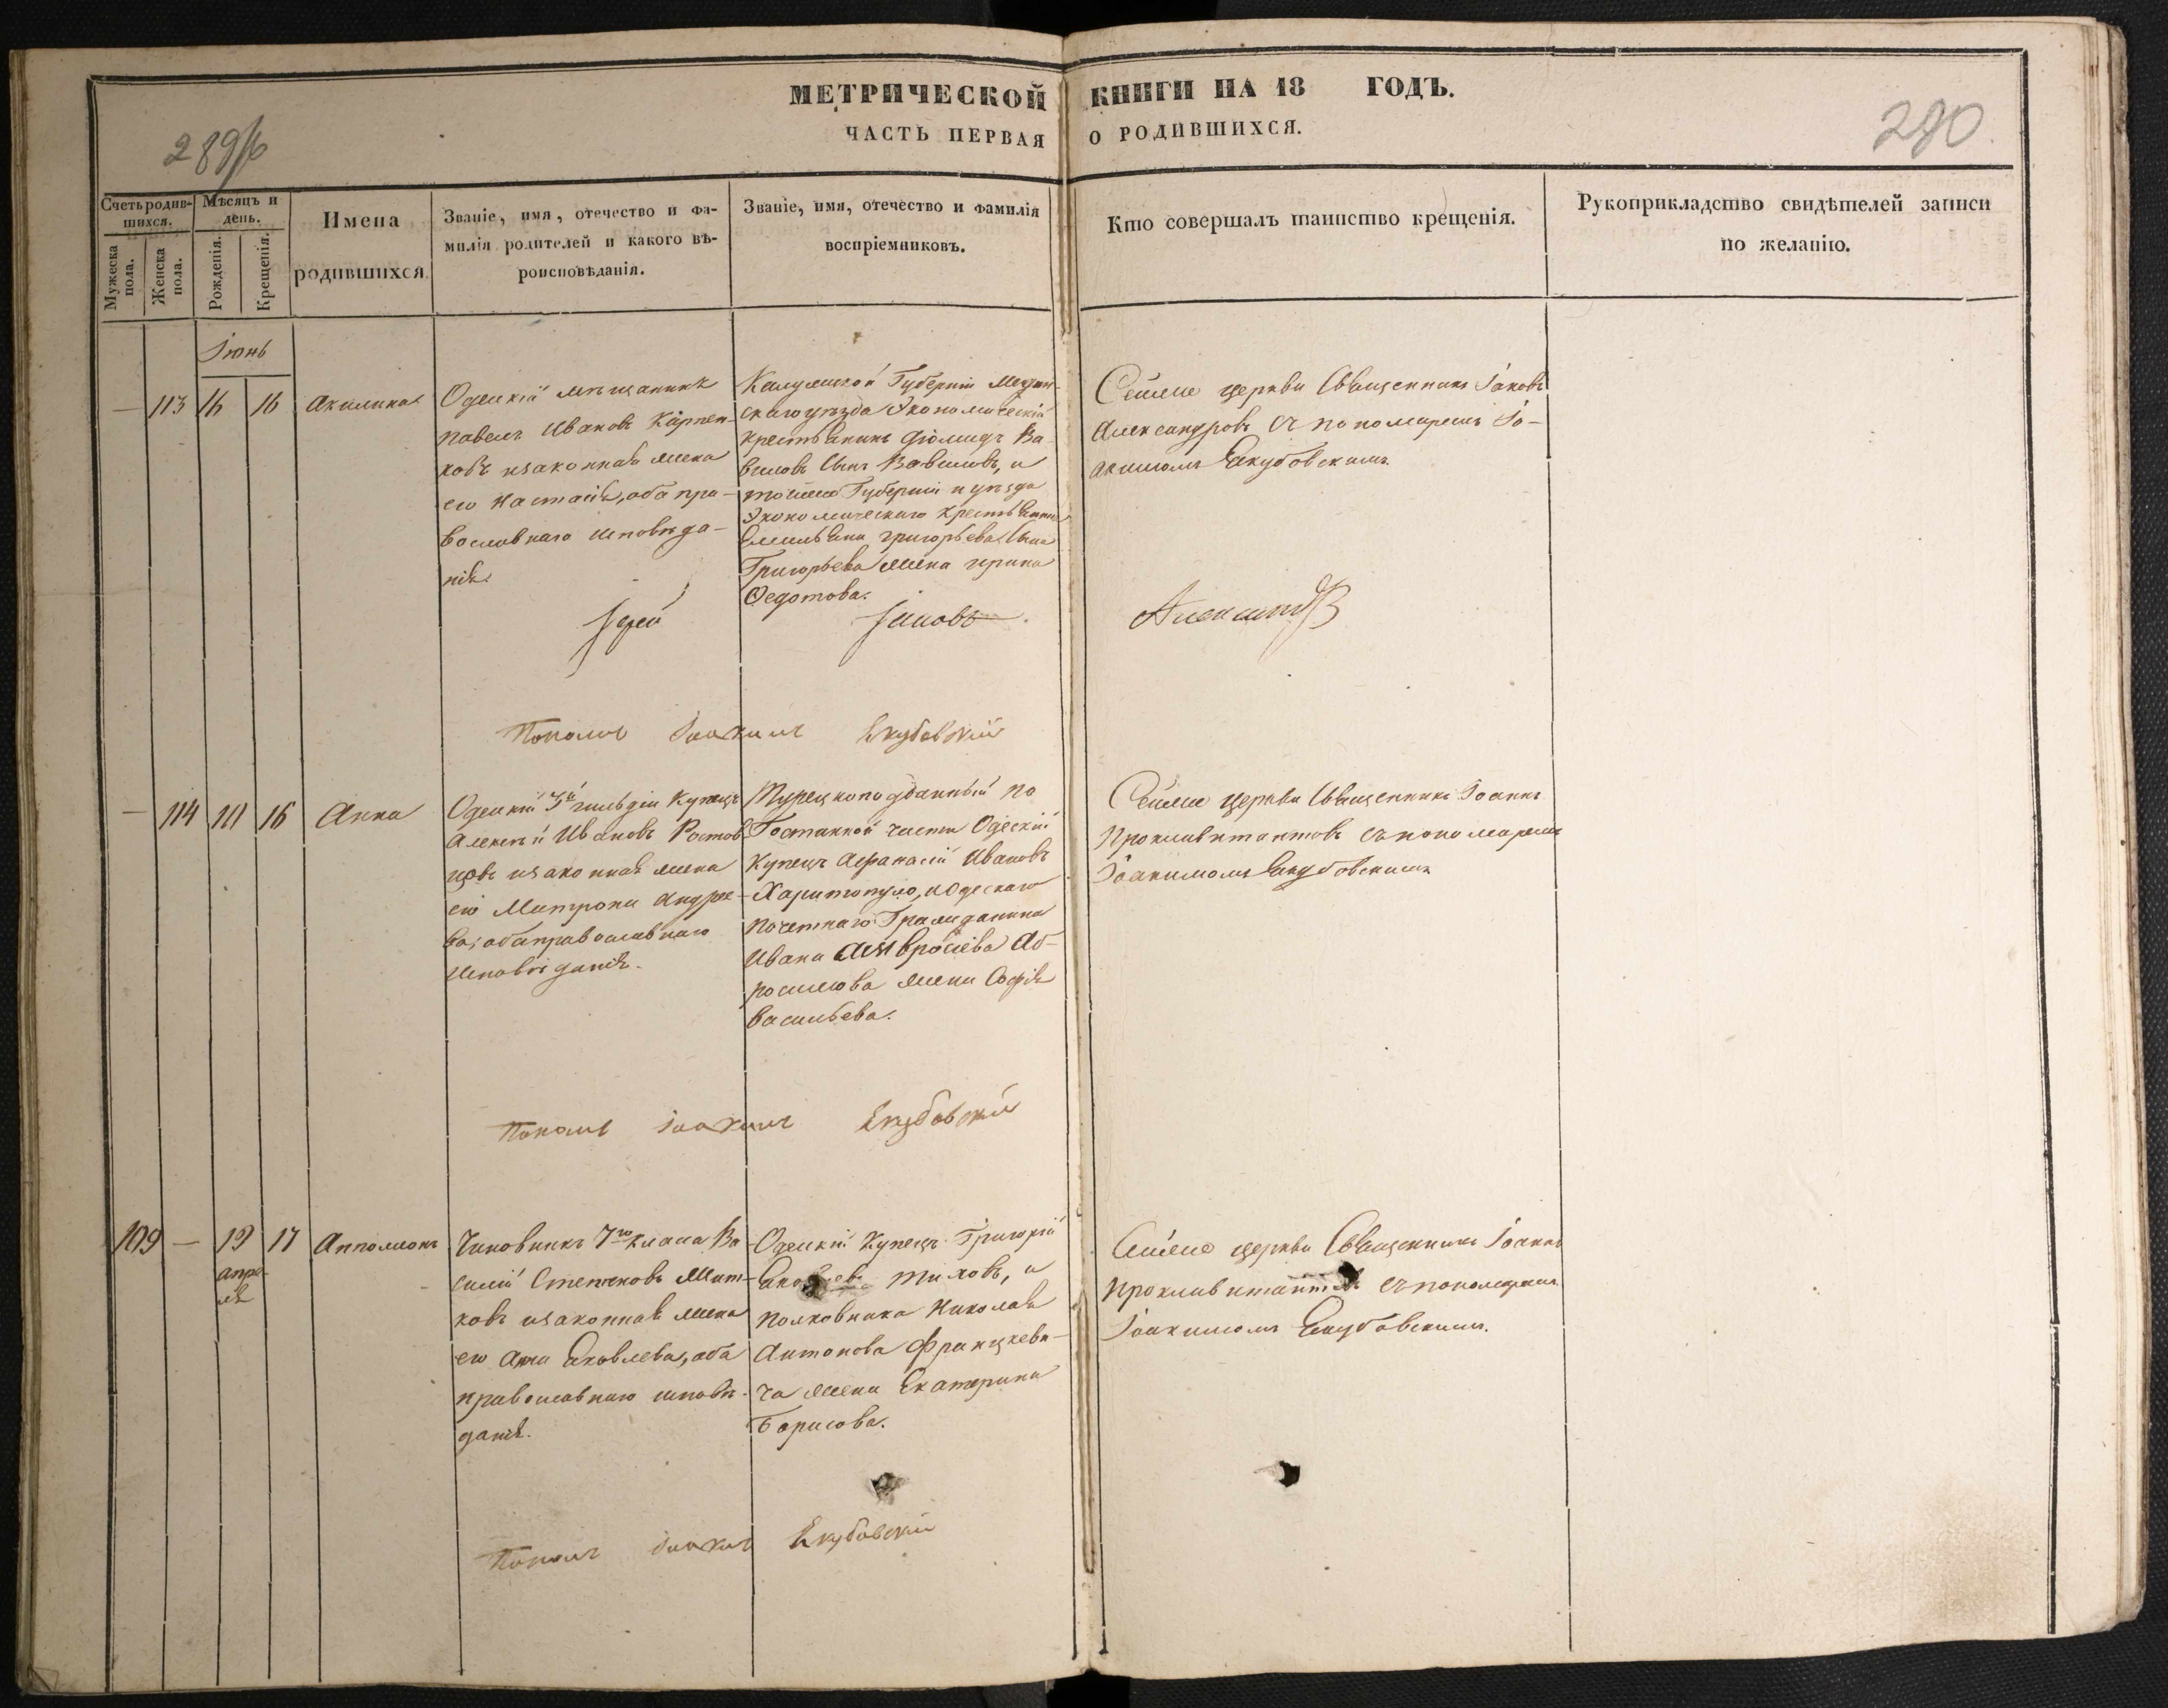 МЕТРИЧЕСКОЙ КНИГИ НА 18 ГОДЪ.
ЧАСТЬ ПЕРВАЯ О РОДИВШИХСЯ.
289/б
290
Счетъ родив-
шихся.
Мужеска пола.
Женска пола.
Мѣсяцъ и
день.
Рожденія.
Крещенія.
Имена
родившихся
Званіе, имя, отечество и фа-
милія родителей и какого вѣ-
роисповѣданія.
Званіе, имя, отечество и фамилія
воспріемниковъ.
Кто совершалъ таинство крещенія.
Рукоприкладство свидѣтелей записи
по желанію.
Іюнь
— 113 16 16 Акилина
Одескій мѣщанинъ
Павелъ Ивановъ Карпен-
ковъ изаконная жена
его Настасія, оба пра-
вославнаго исповѣда-
нія.
Калужской Губерніи Медын-
скаго уѣзда Экономическій
крестьянинъ Діомидъ Ва-
виловъ сынъ Вавиловъ, и
тойже Губерніи и уѣзда
Экономическаго крестьянина
Емельяна Григорьева сына
Григорьева жена Ирина
Ѳедотова.
Сейже церкви Священникъ Іаковъ
Александровъ съ пономаремъ Іо-
акимомъ Якубовскимъ.
Іерей Іаковъ Александровъ
Поном Іоакимъ Якубовскій
— 114 16 Анна
Одескій 3й гильдіи Купецъ
Алексѣй Ивановъ Ростов
цовъ изаконная жена
его Матрона Андрее-
ва, оба православнаго
исповѣданія.
Турецкоподданный по
Гостанной части Одескій
Купецъ Афанасій Ивановъ
Харитопуло, и Одескаго
почетнаго Гражданина
Ивана Амвросіева Аб-
росимова жена Софія
Васильева.
Сейже церкви Священникъ Іоаннъ
Проклитантовъ съ пономаремъ
Іоакимомъ Якубовскимъ
Поном Іоакимъ Якубовскій
109 — 19 17 Апполонъ
апрѣ-
ля
Чиновникъ 7го класа Ва-
силій Степановъ Мит-
ковъ изаконная жена
его Анна Яковлева, оба
православнаго исповѣ-
данія.
Одескій Купецъ Григорій
Тиховъ, и
полковника Николая
Антонова Францкеви-
ча жена Екатерина
Борисова.
Сейже церкви Священникъ Іоаннъ
съ пономаремъ
Іоакимомъ Якубовскимъ.
Поном Іоакимъ Якубовскій